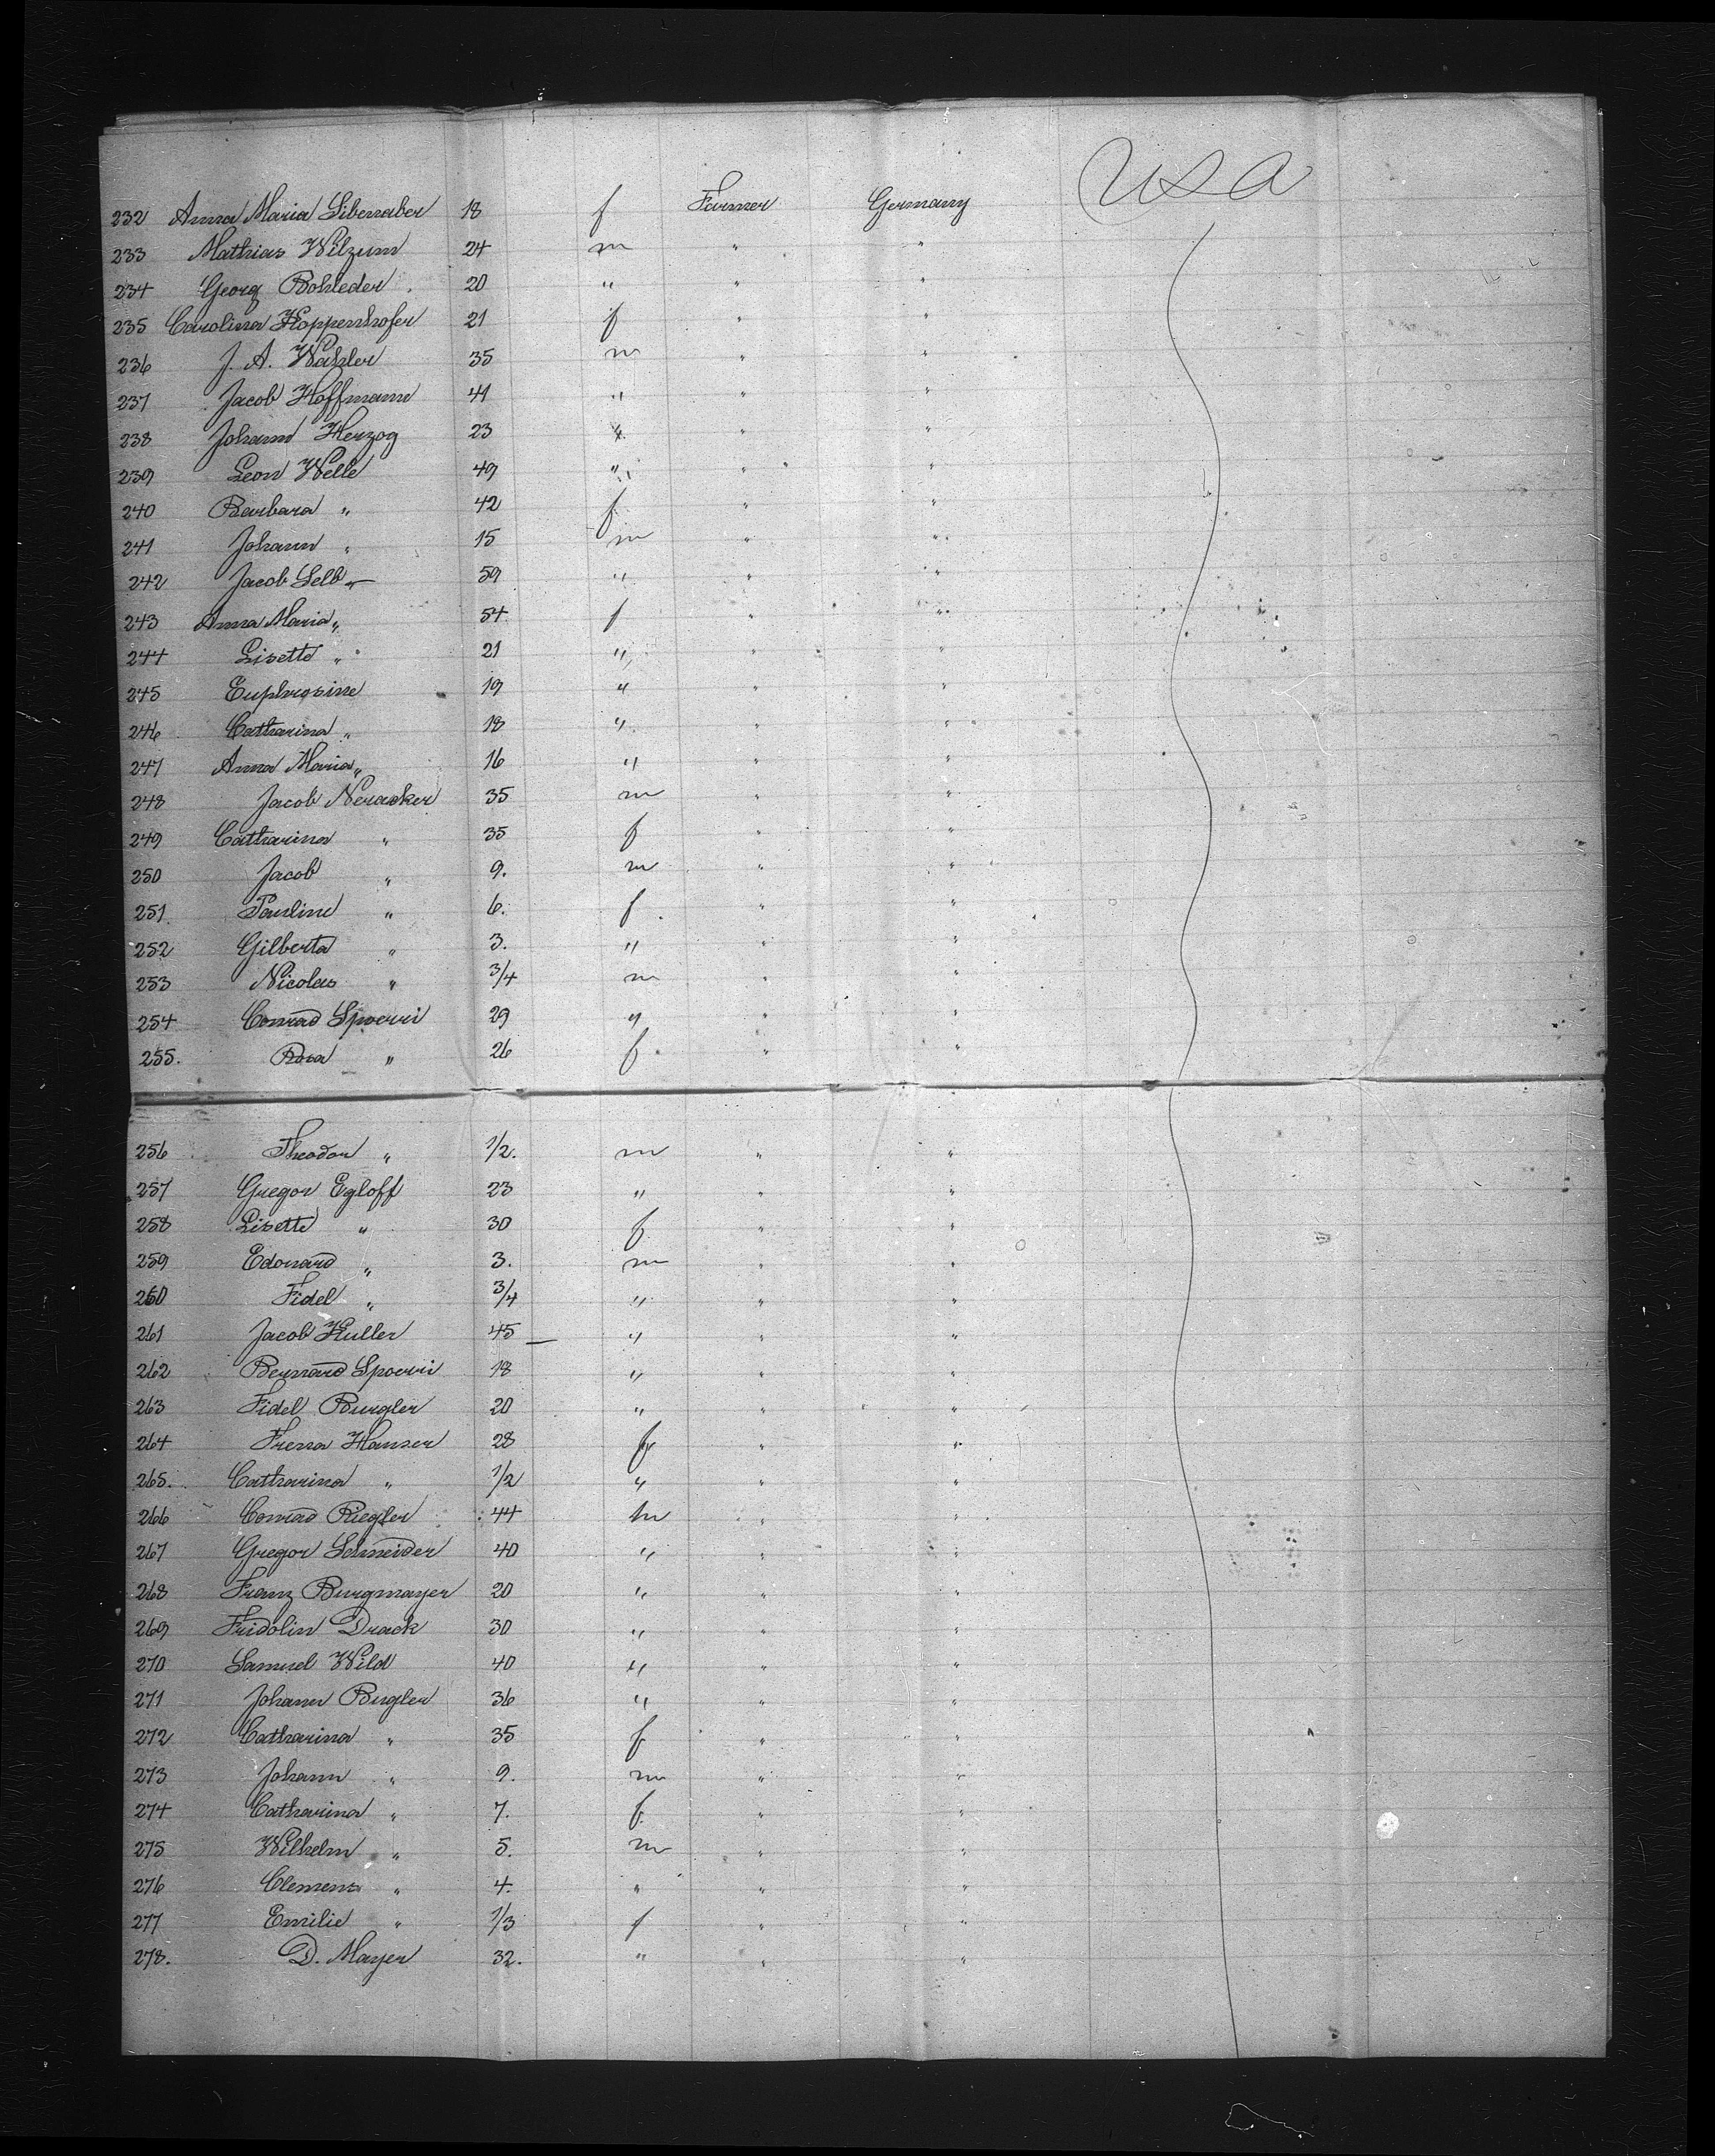 USA
232 Anna Maria Libenaber 18 f Farmer Germany
233 Mathias Wilzum 24 m " "
234 Georg Bohleder 20 " " "
235 Carolina Hoppenhofer 21 f " "
236 J. A. Wahler 35 m " "
237 Jacob Hoffmann 41 " " "
238 Johann Herzog 23 " " "
239 Leon Welle 49 " " "
240 Barbara " 42 f " "
241 Johann " 15 m " "
242 Jacob Selb 59 " " "
243 Anna Maria " 54 f " "
244 Lisette " 21 " " "
245 Euphrosine 19 " " "
246 Catharina " 18 " " "
247 Anna Maria " 16 " " "
248 Jacob Neracker 35 m " "
249 Catharina " 35 f " "
250 Jacob " 9. m " "
251 Pauline " 6. f " "
252 Gilberta " 3. " " "
253 Nicolas " 3/4 m " "
254 Conrad Spoerri 29 " " "
255. Rosa " 26 f " "
256 Theodor " 1/2. m " "
257 Gregor Egloff 23 " " "
258 Lisette " 30 f " "
259 Edouard " 3. m " "
260 Fidel " 3/4 " " "
261 Jacob Huller 45 " " "
262 Bernard Spoerri 18 " " "
263 Fidel Burgler 20 " " "
264 Frena Hanser 28 f " "
265. Catharina " 1/2 " " "
266 Conrad Riegler 44 m " "
267 Gregor Schneider 40 " " "
268 Franz Burgmayer 20 " " "
269 Fridolin Drack 30 " " "
270 Samuel Wild 40 " " "
271 Johann Bugler 36 " " "
272 Catharina " 35 f " "
273 Johann " 9. m " "
274 Catharina " 7. f " "
275 Wilhelm " 5. m " "
276 Clemens " 4. " " "
277 Emilie " 1/3 f " "
278. D. Mayer 32. " " "